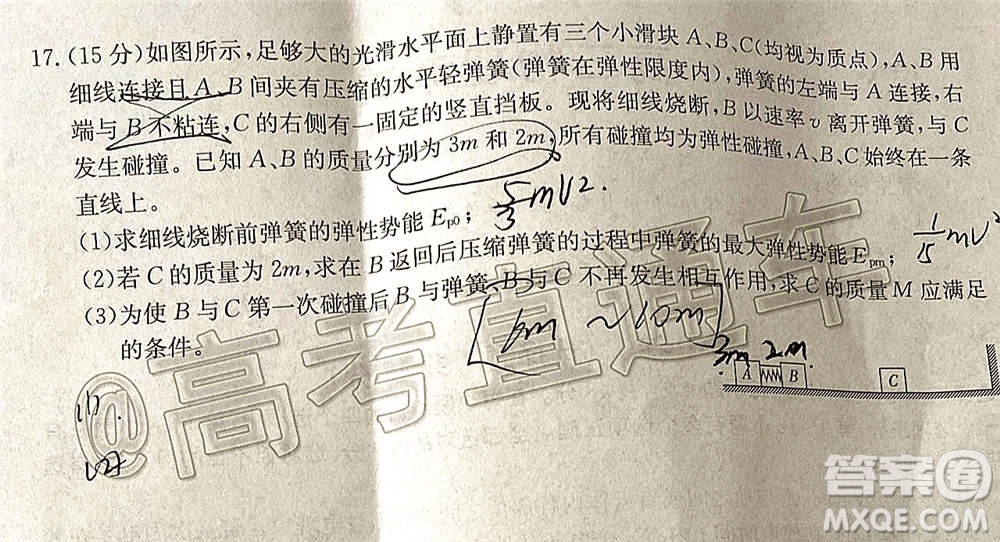 17.(15分)如图所示,足够大的光滑水平面上静置有三个小滑块A、B、C(均视为质点),A、B用
细线连接且A、B间夹有压缩的水平轻弹簧(弹簧在弹性限度内),弹簧的左端与A连接,右
端与B不粘连,C的右侧有一固定的竖直挡板。现将细线烧断,B以速率v离开弹簧,与C
发生碰撞。已知A、B的质量分别为3m和2m,所有碰撞均为弹性碰撞,A、B、C始终在一条
直线上。
(1)求细线烧断前弹簧的弹性势能Ep0; 5/3 mv2.
(2)若C的质量为2m,求在B返回后压缩弹簧的过程中弹簧的最大弹性势能Epm; 1/5 mv2
(3)为使B与C第一次碰撞后B与弹簧、B与C不再发生相互作用,求C的质量M应满足
的条件。 [6m ~ 10m]
3m 2m
A B C
(1).
(2)
@高考直通车
答案圈
MXQE.COM